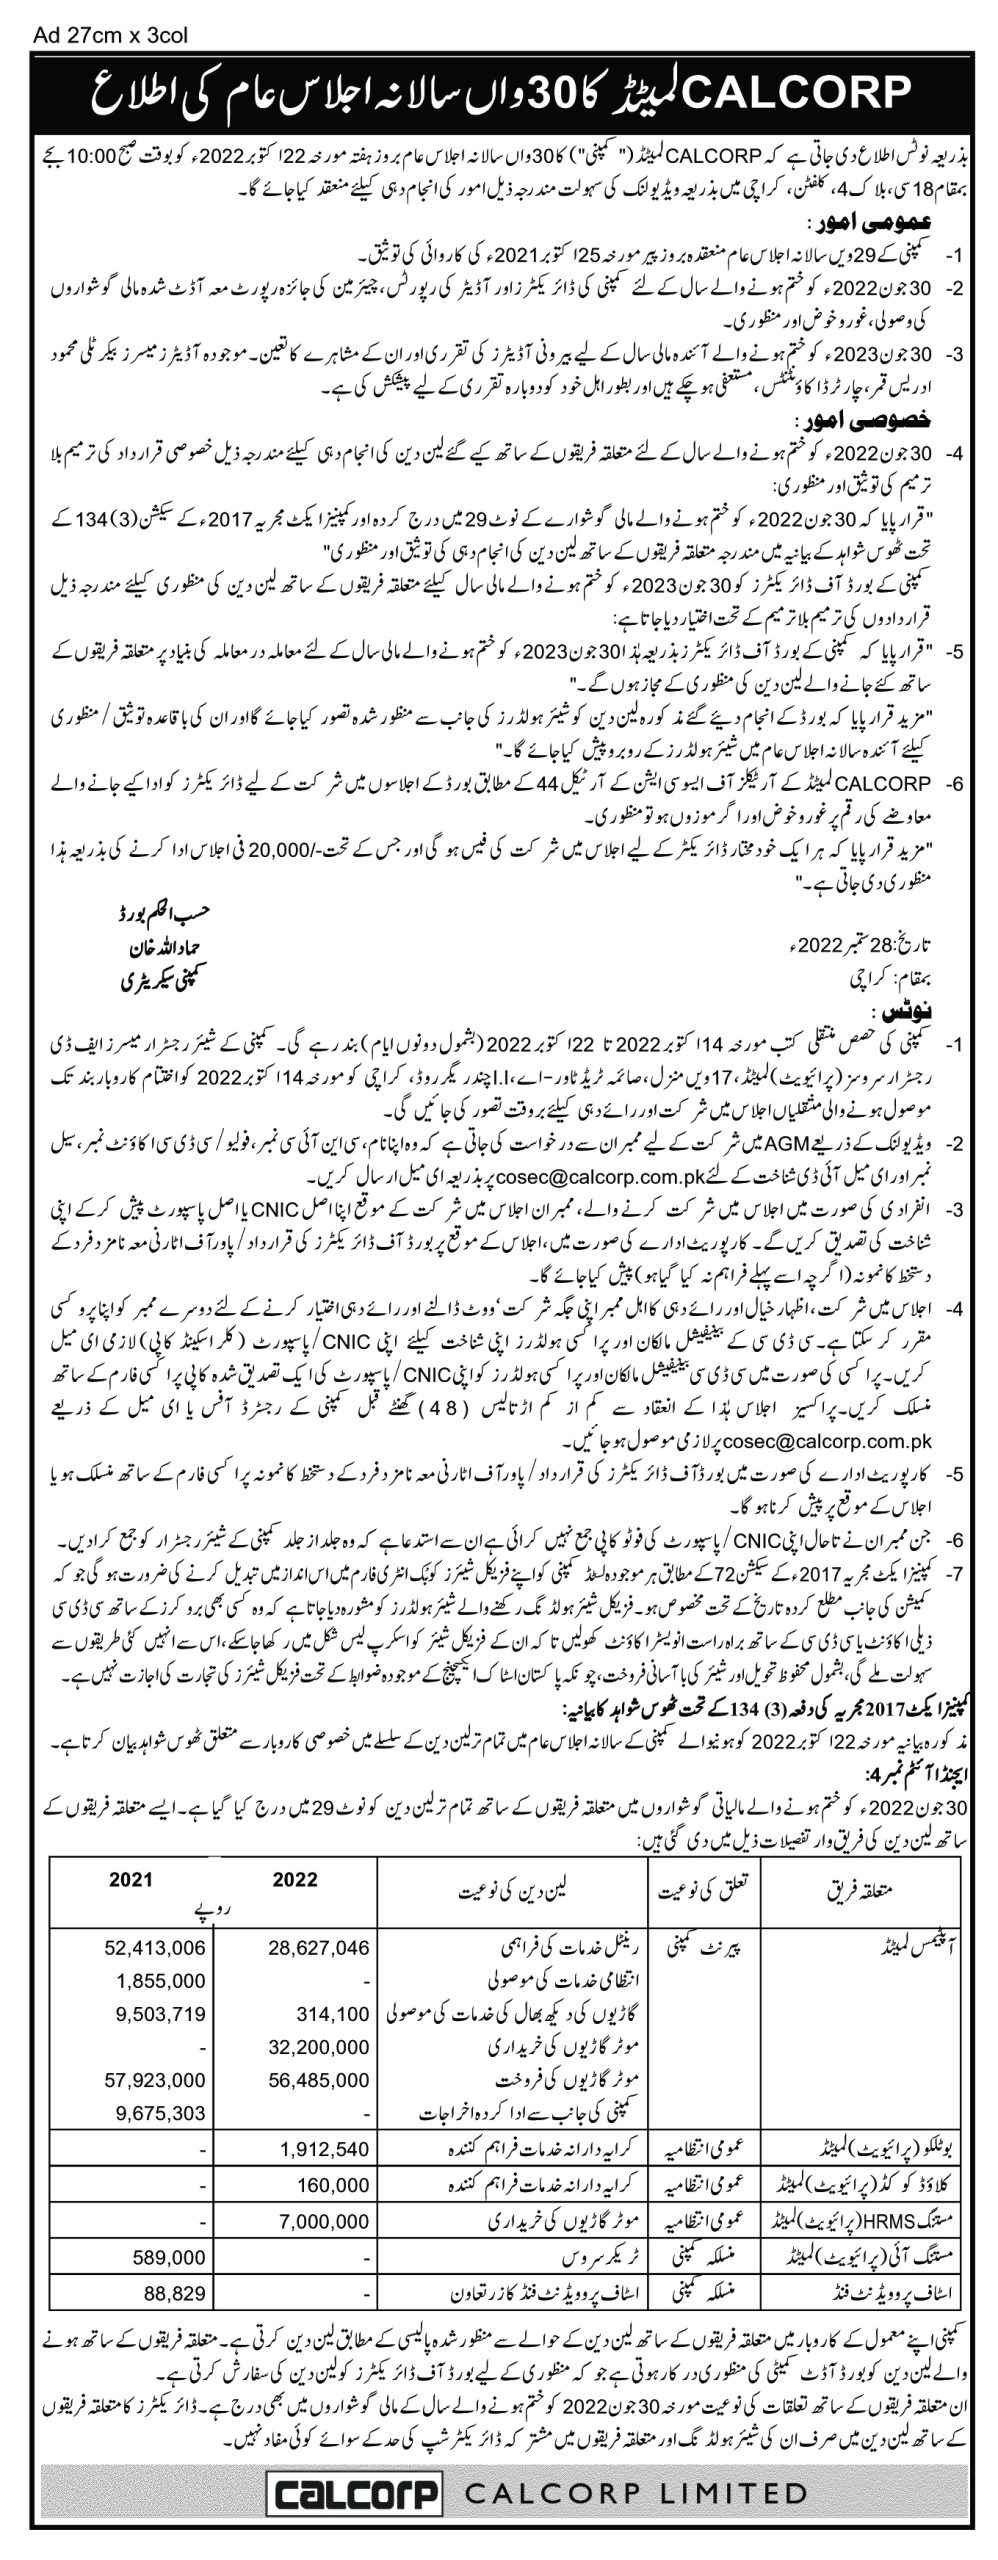 Ad 27cm x 3col
CALCORP لمیٹڈ کا 30 واں سالانہ اجلاس عام کی اطلاع
بذریعہ نوٹس اطلاع دی جاتی ہے کہ CALCORP لمیٹڈ ("کمپنی") کا 30 واں سالانہ اجلاس عام بروز ہفتہ مورخہ 22 اکتوبر 2022ء کو بوقت صبح 10:00 بجے
بمقام 18 سی، بلاک 4، کلفٹن، کراچی میں بذریعہ ویڈیو لنک کی سہولت مندرجہ ذیل امور کی انجام دہی کیلئے منعقد کیا جائے گا۔
عمومی امور :
1- کمپنی کے 29 ویں سالانہ اجلاس عام منعقدہ بروز پیر مورخہ 25 اکتوبر 2021ء کی کاروائی کی توثیق۔
2- 30 جون 2022ء کو ختم ہونے والے سال کے لئے کمپنی کی ڈائریکٹرز اور آڈیٹر کی رپورٹس، چیئرمین کی جائزہ رپورٹ معہ آڈٹ شدہ مالی گوشواروں
کی وصولی، غور و خوض اور منظوری۔
3- 30 جون 2023ء کو ختم ہونے والے آئندہ مالی سال کے لیے بیرونی آڈیٹرز کی تقرری اور ان کے مشاہرے کا تعین۔ موجودہ آڈیٹرز میسرز بیکر ٹلی محمود
ادریس قمر، چارٹرڈ اکاؤنٹنٹس، مستعفی ہو چکے ہیں اور بطور اہل خود کو دوبارہ تقرری کے لیے پیشکش کی ہے۔
خصوصی امور :
4- 30 جون 2022ء کو ختم ہونے والے سال کے لئے متعلقہ فریقوں کے ساتھ کیے گئے لین دین کی انجام دہی کیلئے مندرجہ ذیل خصوصی قرارداد کی ترمیم بلا
ترمیم کی توثیق اور منظوری:
"قرار پایا کہ 30 جون 2022ء کو ختم ہونے والے مالی گوشوارے کے نوٹ 29 میں درج کردہ اور کمپنیز ایکٹ مجریہ 2017ء کے سیکشن (3)134 کے
تحت ٹھوس شواہد کے بیانیہ میں مندرجہ متعلقہ فریقوں کے ساتھ لین دین کی انجام دہی کی توثیق اور منظوری"
کمپنی کے بورڈ آف ڈائریکٹرز کو 30 جون 2023ء کو ختم ہونے والے مالی سال کیلئے متعلقہ فریقوں کے ساتھ لین دین کی منظوری کیلئے مندرجہ ذیل
قراردادوں کی ترمیم بلا ترمیم کے تحت اختیار دیا جاتا ہے:
5- "قرار پایا کہ کمپنی کے بورڈ آف ڈائریکٹرز بذریعہ ہٰذا 30 جون 2023ء کو ختم ہونے والے مالی سال کے لئے معاملہ در معاملہ کی بنیاد پر متعلقہ فریقوں کے
ساتھ کئے جانے والے لین دین کی منظوری کے مجاز ہوں گے۔"
"مزید قرار پایا کہ بورڈ کے انجام دیئے گئے مذکورہ لین دین کو شیئر ہولڈرز کی جانب سے منظور شدہ تصور کیا جائے گا اور ان کی باقاعدہ توثیق / منظوری
کیلئے آئندہ سالانہ اجلاس عام میں شیئر ہولڈرز کے روبرو پیش کیا جائے گا۔"
6- CALCORP لمیٹڈ کے آرٹیکلز آف ایسوسی ایشن کے آرٹیکل 44 کے مطابق بورڈ کے اجلاسوں میں شرکت کے لیے ڈائریکٹرز کو ادا کیے جانے والے
معاوضے کی رقم پر غور و خوض اور اگر موزوں ہو تو منظوری۔
"مزید قرار پایا کہ ہر ایک خود مختار ڈائریکٹر کے لیے اجلاس میں شرکت کی فیس ہو گی اور جس کے تحت -/20,000 فی اجلاس ادا کرنے کی بذریعہ ہذا
منظوری دی جاتی ہے۔"
حسب الحکم بورڈ
تاریخ: 28 ستمبر 2022ء
حماد اللہ خان
بمقام: کراچی
کمپنی سیکریٹری
نوٹس :
1- کمپنی کی حصص منتقلی کتب مورخہ 14 اکتوبر 2022 تا 22 اکتوبر 2022 (بشمول دونوں ایام) بند رہے گی۔ کمپنی کے شیئر رجسٹرار میسرز ایف ڈی
رجسٹرار سروسز (پرائیویٹ) لمیٹڈ، 17 ویں منزل، صائمہ ٹریڈ ٹاور-اے، I.I چندریگر روڈ، کراچی کو مورخہ 14 اکتوبر 2022 کو اختتام کاروبار بند تک
موصول ہونے والی منتقلیاں اجلاس میں شرکت اور رائے دہی کیلئے بروقت تصور کی جائیں گی۔
2- ویڈیو لنک کے ذریعے AGM میں شرکت کے لیے ممبران سے درخواست کی جاتی ہے کہ وہ اپنا نام، سی این آئی سی نمبر، فولیو / سی ڈی سی اکاؤنٹ نمبر، سیل
نمبر اور ای میل آئی ڈی شناخت کے لئے cosec@calcorp.com.pk پر بذریعہ ای میل ارسال کریں۔
3- انفرادی کی صورت میں اجلاس میں شرکت کرنے والے، ممبران اجلاس میں شرکت کے موقع اپنا اصل CNIC یا اصل پاسپورٹ پیش کر کے اپنی
شناخت کی تصدیق کریں گے۔ کارپوریٹ ادارے کی صورت میں، اجلاس کے موقع پر بورڈ آف ڈائریکٹرز کی قرارداد / پاور آف اٹارنی معہ نامزد فرد کے
دستخط کا نمونہ (اگرچہ اسے پہلے فراہم نہ کیا گیا ہو) پیش کیا جائے گا۔
4- اجلاس میں شرکت، اظہار خیال اور رائے دہی کا اہل ممبر اپنی جگہ شرکت' ووٹ ڈالنے اور رائے دہی اختیار کرنے کے لئے دوسرے ممبر کو اپنا پروکسی
مقرر کر سکتا ہے۔ سی ڈی سی کے بینیفیشل مالکان اور پراکسی ہولڈرز اپنی شناخت کیلئے اپنی CNIC/پاسپورٹ (کلر اسکینڈ کاپی) لازمی ای میل
کریں۔ پراکسی کی صورت میں سی ڈی سی بینیفیشل مالکان اور پراکسی ہولڈرز کو اپنی CNIC/پاسپورٹ کی ایک تصدیق شدہ کاپی پراکسی فارم کے ساتھ
منسلک کریں۔ پراکسیز اجلاس ہٰذا کے انعقاد سے کم از کم اڑتالیس (48) گھنٹے قبل کمپنی کے رجسٹرڈ آفس یا ای میل کے ذریعے
cosec@calcorp.com.pk پر لازمی موصول ہو جائیں۔
5- کارپوریٹ ادارے کی صورت میں بورڈ آف ڈائریکٹرز کی قرارداد / پاور آف اٹارنی معہ نامزد فرد کے دستخط کا نمونہ پراکسی فارم کے ساتھ منسلک ہو یا
اجلاس کے موقع پر پیش کرنا ہو گا۔
6- جن ممبران نے تاحال اپنی CNIC/پاسپورٹ کی فوٹو کاپی جمع نہیں کرائی ہے ان سے استدعا ہے کہ وہ جلد از جلد کمپنی کے شیئر رجسٹرار کو جمع کرا دیں۔
7- کمپنیز ایکٹ مجریہ 2017ء کے سیکشن 72 کے مطابق ہر موجودہ لسٹڈ کمپنی کو اپنے فزیکل شیئرز کو بک انٹری فارم میں اس انداز میں تبدیل کرنے کی ضرورت ہو گی جو کہ
کمیشن کی جانب مطلع کردہ تاریخ کے تحت مخصوص ہو۔ فزیکل شیئر ہولڈنگ رکھنے والے شیئر ہولڈرز کو مشورہ دیا جاتا ہے کہ وہ کسی بھی بروکرز کے ساتھ سی ڈی سی
ذیلی اکاؤنٹ یا سی ڈی سی کے ساتھ براہ راست انویسٹر اکاؤنٹ کھولیں تا کہ ان کے فزیکل شیئر کو اسکرپ لیس شکل میں رکھا جا سکے، اس سے انہیں کئی طریقوں سے
سہولت ملے گی، بشمول محفوظ تحویل اور شیئر کی با آسانی فروخت، چونکہ پاکستان اسٹاک ایکسچینج کے موجودہ ضوابط کے تحت فزیکل شیئرز کی تجارت کی اجازت نہیں ہے۔
کمپنیز ایکٹ 2017 مجریہ کی دفعہ (3) 134 کے تحت ٹھوس شواہد کا بیانیہ:
مذکورہ بیانیہ مورخہ 22 اکتوبر 2022 کو ہونیوالے کمپنی کے سالانہ اجلاس عام میں تمام تر لین دین کے سلسلے میں خصوصی کاروبار سے متعلق ٹھوس شواہد بیان کرتا ہے۔
ایجنڈا آئٹم نمبر 4:
30 جون 2022ء کو ختم ہونے والے مالیاتی گوشواروں میں متعلقہ فریقوں کے ساتھ تمام تر لین دین کو نوٹ 29 میں درج کیا گیا ہے۔ ایسے متعلقہ فریقوں کے
ساتھ لین دین کی فریق وار تفصیلات ذیل میں دی گئی ہیں:
متعلقہ فریق تعلق کی نوعیت لین دین کی نوعیت 2022 2021
روپے
آپٹیمس لمیٹڈ پیرنٹ کمپنی رینٹل خدمات کی فراہمی 28,627,046 52,413,006
انتظامی خدمات کی موصولی - 1,855,000
گاڑیوں کی دیکھ بھال کی خدمات کی موصولی 314,100 9,503,719
موٹر گاڑیوں کی خریداری 32,200,000 -
موٹر گاڑیوں کی فروخت 56,485,000 57,923,000
کمپنی کی جانب سے ادا کردہ اخراجات - 9,675,303
بوٹلکو (پرائیویٹ) لمیٹڈ عمومی انتظامیہ کرایہ دارانہ خدمات فراہم کنندہ 1,912,540 -
کلاؤڈ کوکڈ (پرائیویٹ) لمیٹڈ عمومی انتظامیہ کرایہ دارانہ خدمات فراہم کنندہ 160,000 -
مستنگ HRMS (پرائیویٹ) لمیٹڈ عمومی انتظامیہ موٹر گاڑیوں کی خریداری 7,000,000 -
مستنگ آئی (پرائیویٹ) لمیٹڈ منسلکہ کمپنی ٹریکر سروس - 589,000
اسٹاف پروویڈنٹ فنڈ منسلکہ کمپنی اسٹاف پروویڈنٹ فنڈ کا زر تعاون - 88,829
کمپنی اپنے معمول کے کاروبار میں متعلقہ فریقوں کے ساتھ لین دین کے حوالے سے منظور شدہ پالیسی کے مطابق لین دین کرتی ہے۔ متعلقہ فریقوں کے ساتھ ہونے
والے لین دین کو بورڈ آڈٹ کمیٹی کی منظوری درکار ہوتی ہے جو کہ منظوری کے لیے بورڈ آف ڈائریکٹرز کو لین دین کی سفارش کرتی ہے۔
ان متعلقہ فریقوں کے ساتھ تعلقات کی نوعیت مورخہ 30 جون 2022 کو ختم ہونے والے سال کے مالی گوشواروں میں بھی درج ہے۔ ڈائریکٹرز کا متعلقہ فریقوں
کے ساتھ لین دین میں صرف ان کی شیئر ہولڈنگ اور متعلقہ فریقوں میں مشترکہ ڈائریکٹر شپ کی حد کے سوائے کوئی مفاد نہیں۔
calcorp CALCORP LIMITED